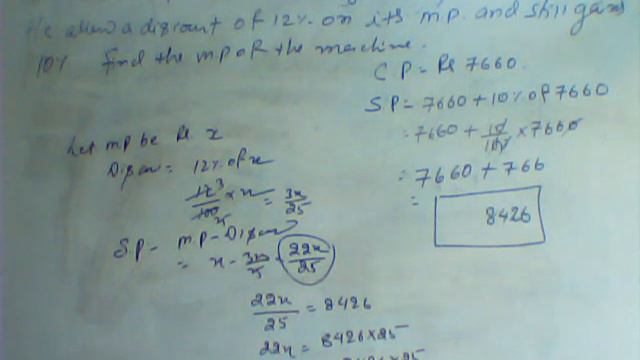 He allow a discount of 12% on its m.p. and still gains
10% find the mp of the machine.
C.P = Rs 7660.
S.P = 7660 + 10% of 7660
= 7660 + 10/100 × 7660
= 7660 + 766
= 8426
Let mp be Rs. x
Discou = 12% of x
12/100 3 25 × x = 3x/25
S.P = M.P - Discou
= x - 3x/25 = 22x/25
22x/25 = 8426
22x = 8426 × 25